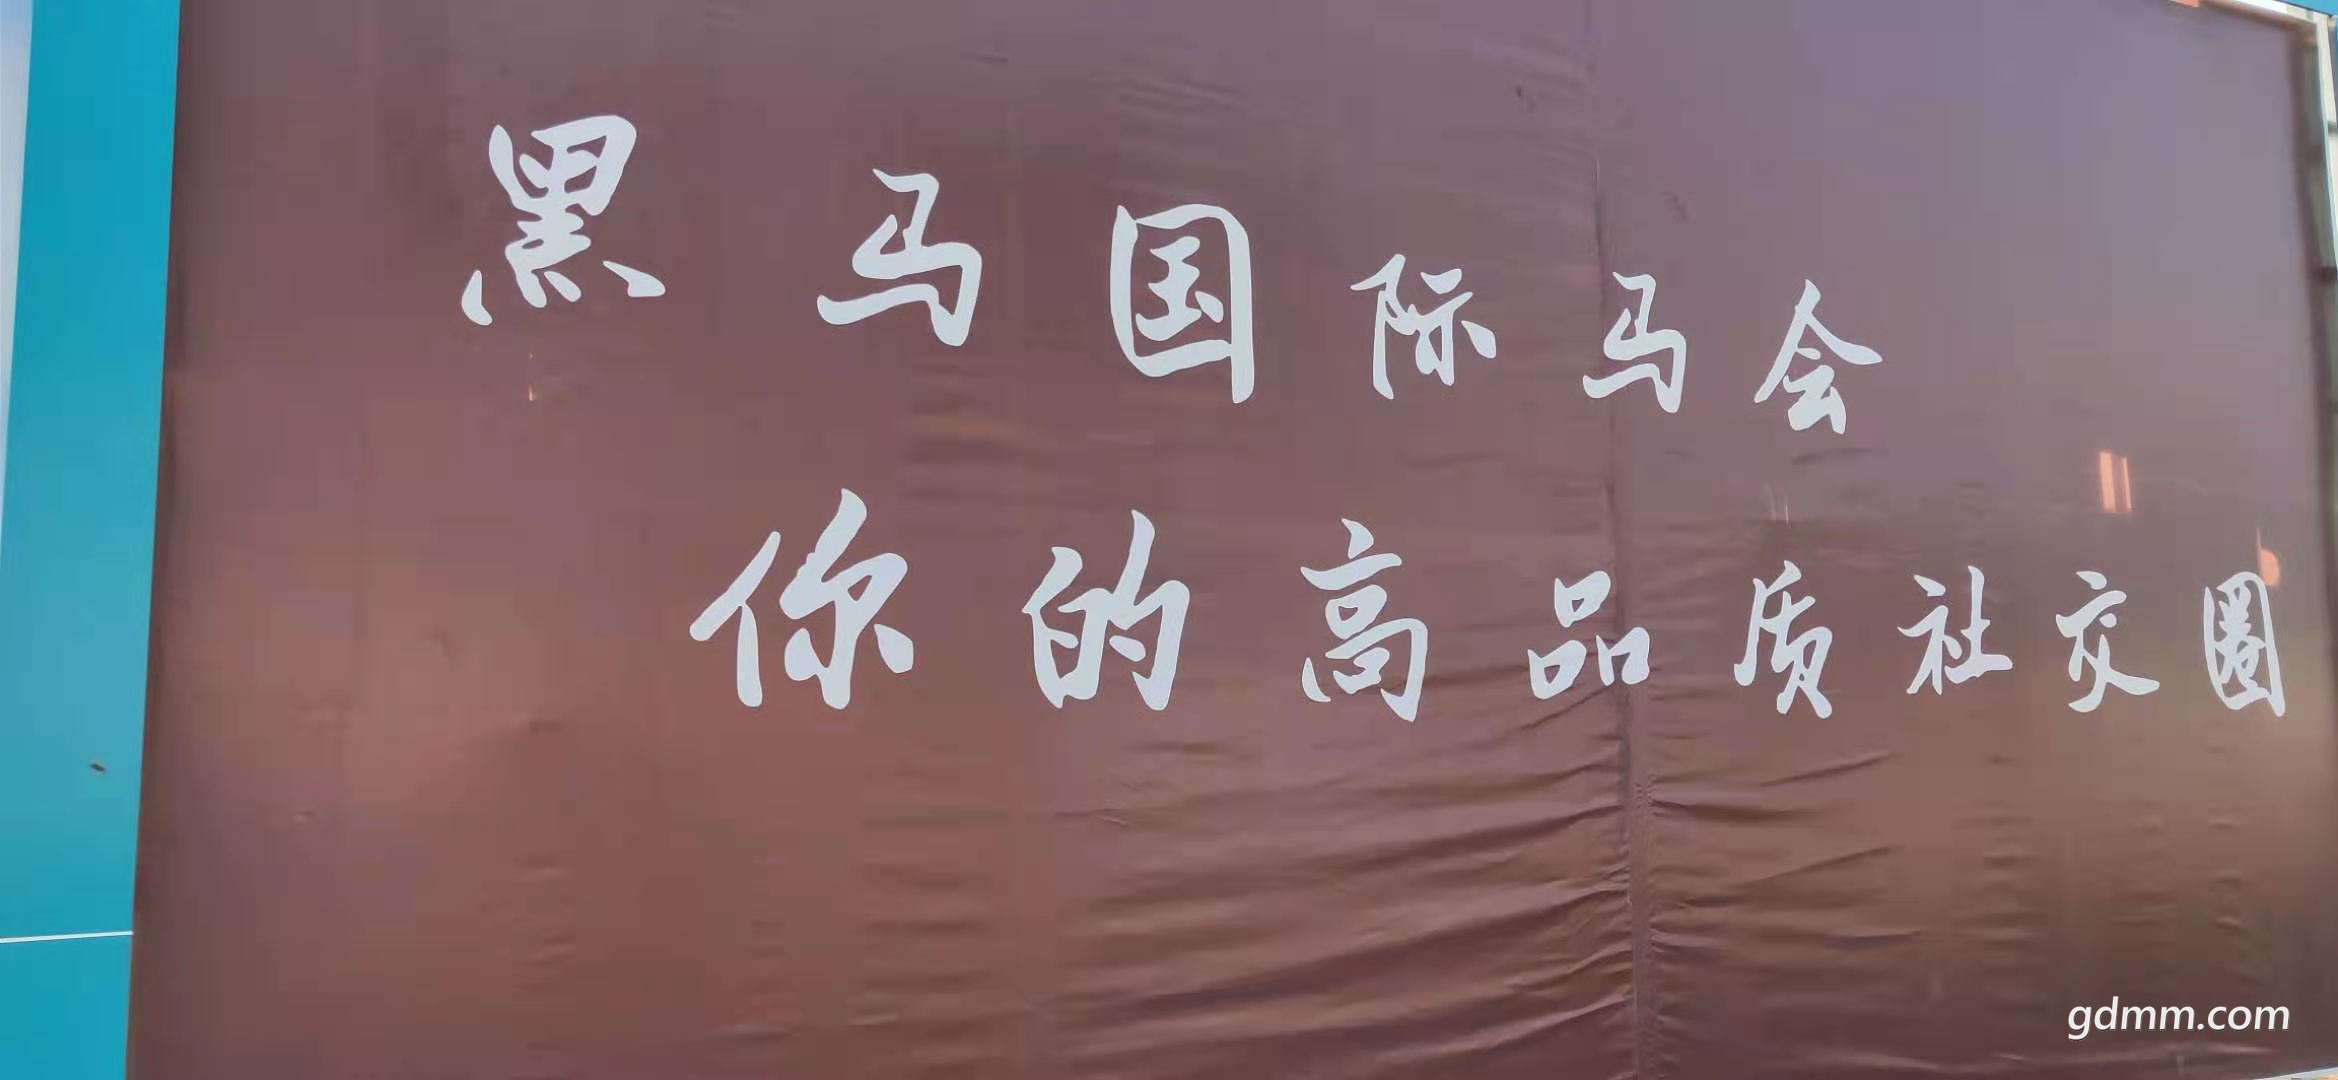 黑马国际马会
你的高品质社交圈
gdmm.com